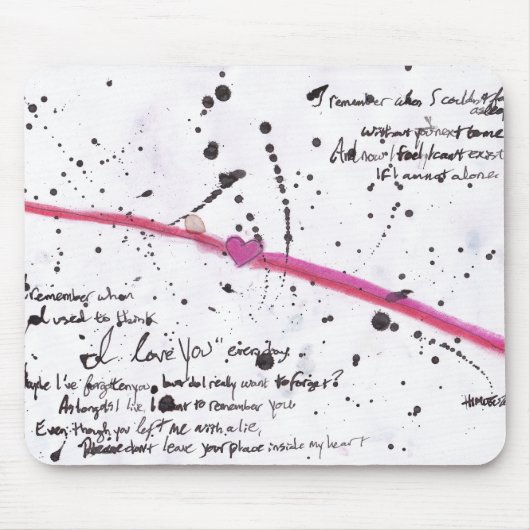 I remember when I couldn't fall
asleep
without you next to me
And now I feel I can't exist
If I am not alone.
remember when
I used to think
I love you" everyday.
Maybe I've forgotten you, but do I really want to forget?
As long as I live, I want to remember you
Even though you left me with a lie,
Please don't leave your place inside my heart